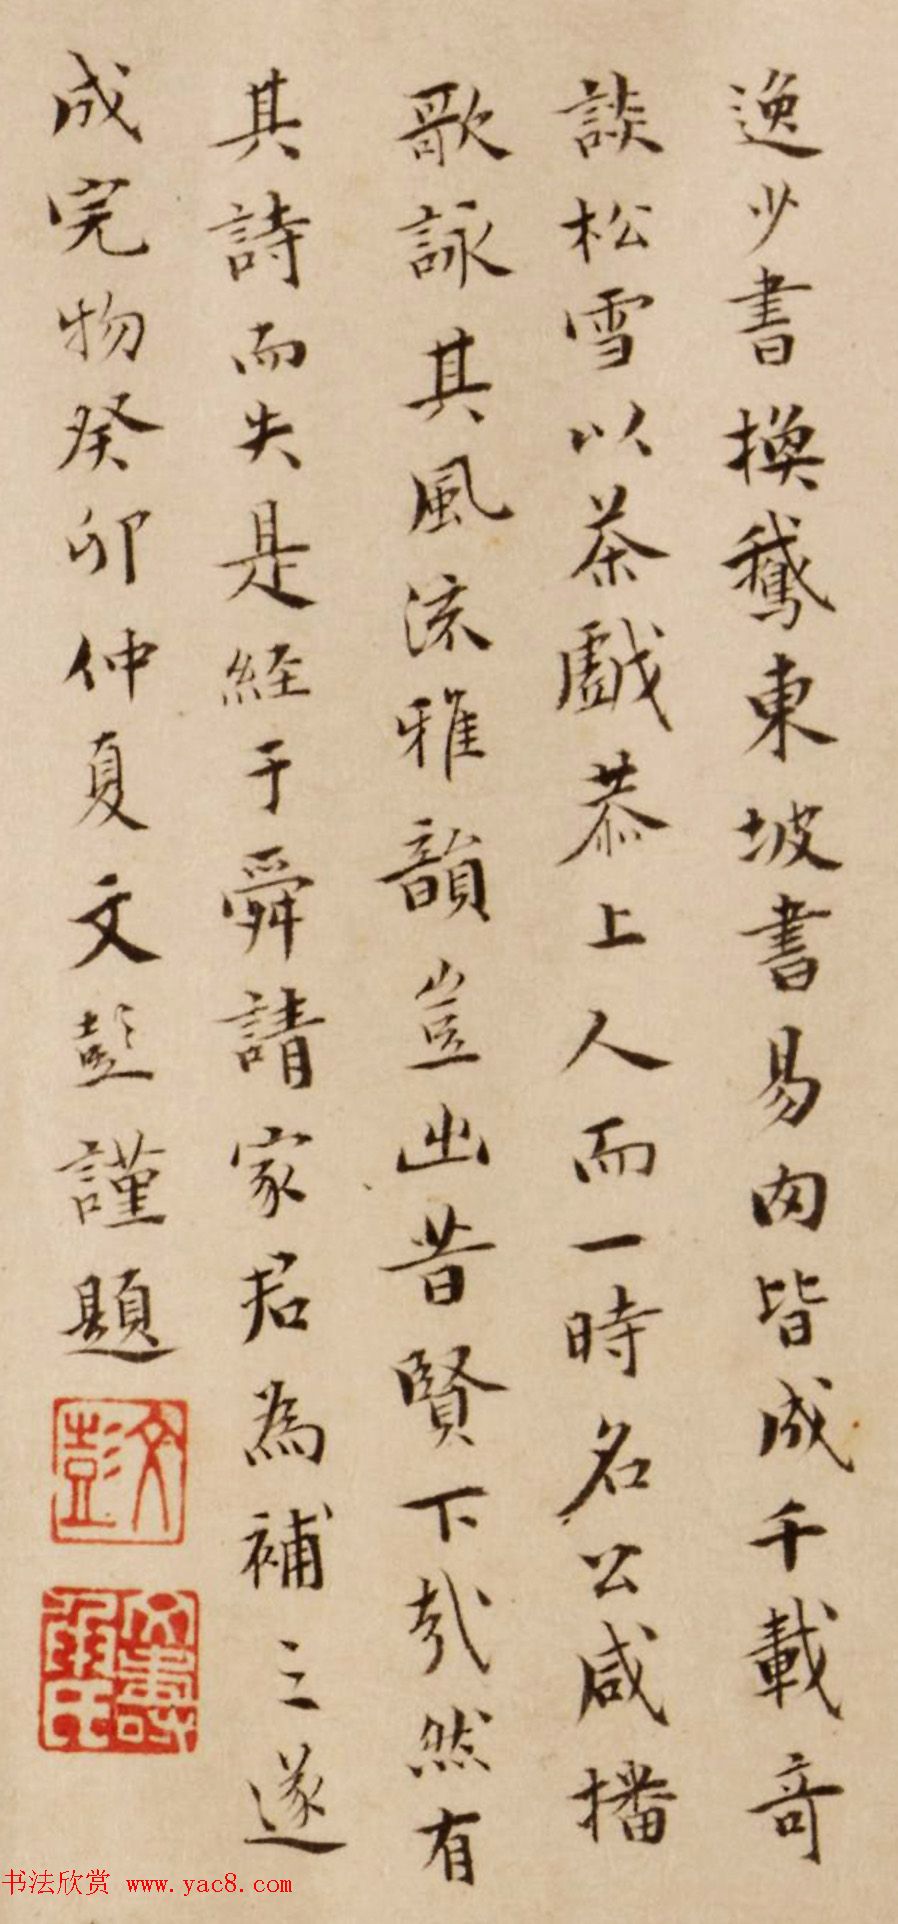 逸少書換鵞東坡書易肉皆成千載奇
談松雪以茶戲恭上人而一時名公咸播
歌詠其風流雅韻豈出昔賢下哉然有
其詩而失是經于舜請家君為補之遂
成完物癸卯仲夏文彭謹題
文彭
文壽承氏
书法欣赏 www.yac8.com